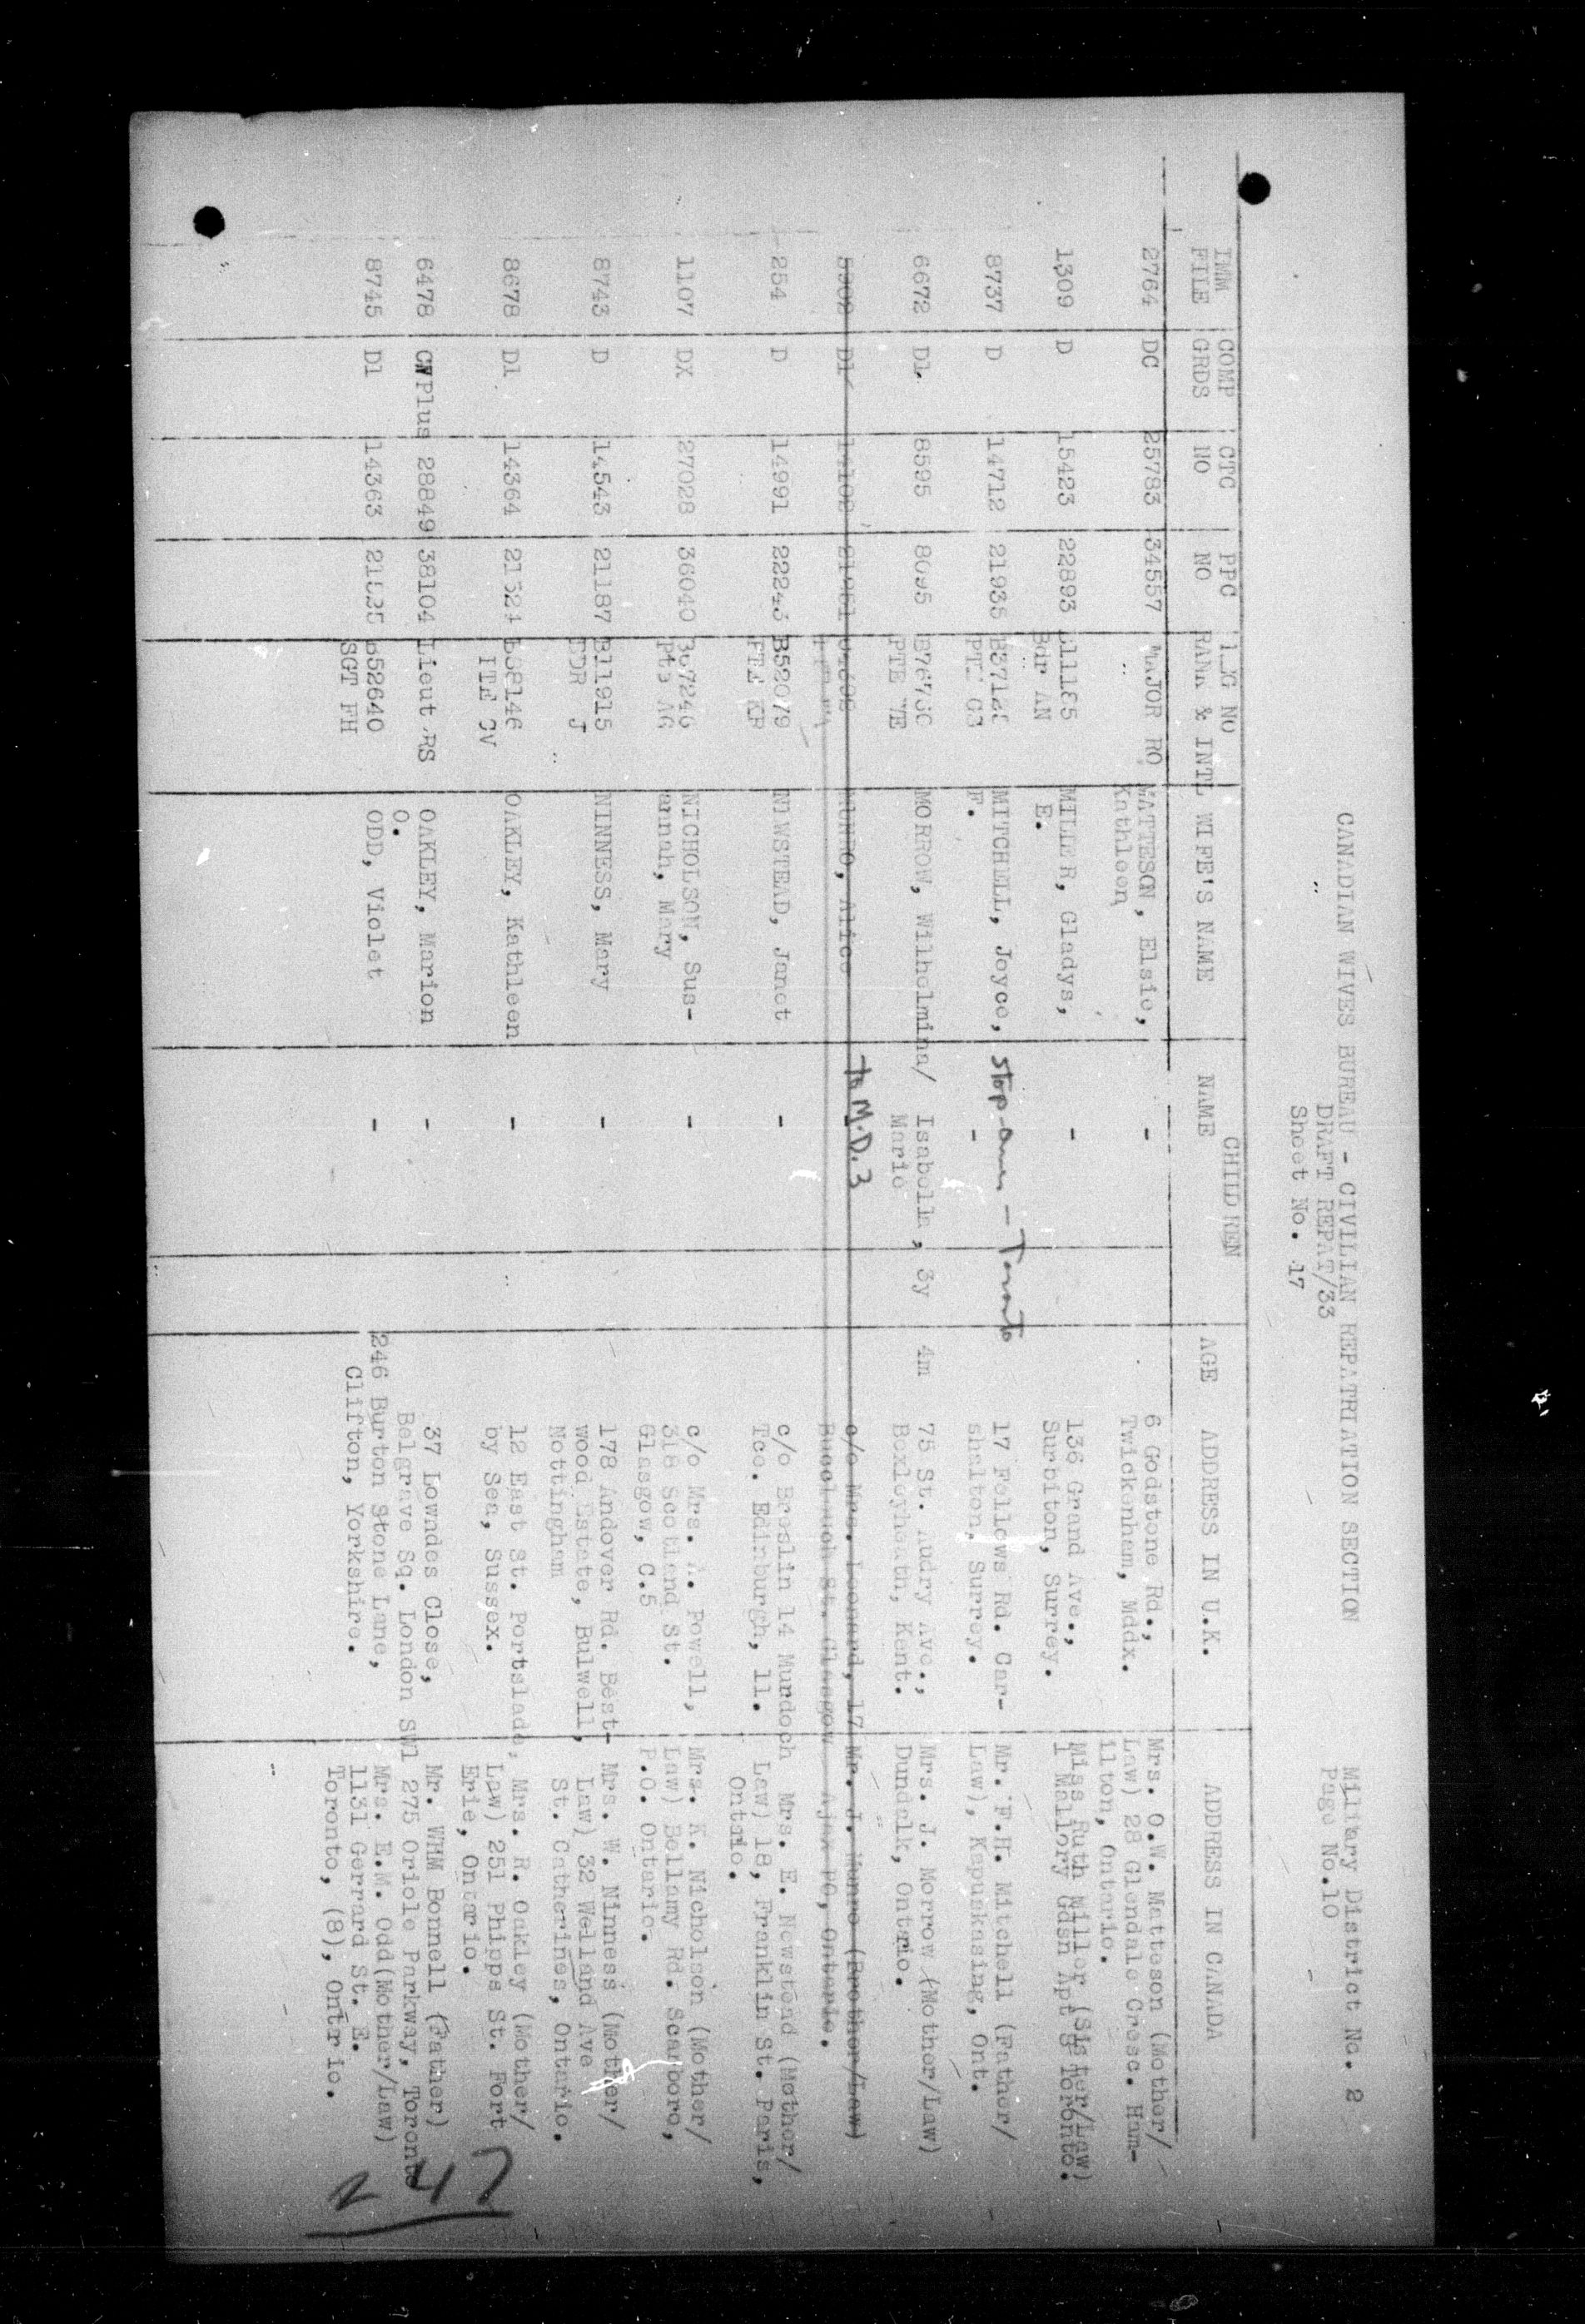 CANADIAN WIVES BUREAU - CIVILIAN REPATRIATION SECTION
DRAFT REPAT/33
Sheet No. 17
Military District No. 2
Page No.10
IMM FILE COMP GRDS CTC NO PPC NO REG NO RANK & INTL WIFE'S NAME CHILDREN NAME AGE ADDRESS IN U.K. ADDRESS IN CANADA
2764 DC 25783 34557 MAJOR RO MATTESON, Elsie, - 6 Godstone Rd., Mrs. O.W. Matteson (Mother/
Kathleen Twickenham, Mddx. Law) 28 Glendale Cresc. Ham-
ilton, Ontario.
1309 D 15423 22893 MILLER, Gladys, - 136 Grand Ave., Miss Ruth Miller (Sister/Law)
Bdr AN E. Surbiton, Surrey. 1 Mallory Gdsn Apt 3 Toronto.
8737 D 14712 21935 MITCHELL, Joyce, stop over - Toronto 17 Fellows Rd. Car- Mr. F.H. Mitchell (Father/
F. - shalton, Surrey. Law), Kapuskasing, Ont.
6672 D1 8595 MORROW, Wilhelmina/ Isabella, 3y 4m 75 St. Audry Ave., Mrs. J. Morrow (Mother/Law)
PTE WE Marie Bexleyheath, Kent. Dundalk, Ontario.
D1 MUNRO, Alice to M.D.3 c/o Mrs. Leonard, 17 Mr. J. Munro (Brother/Law)
Buccleuch St. Glasgow Ajax PO, Ontario.
254 D 14991 22243 B52079 NEWSTEAD, Janet - c/o Breslin 14 Murdoch Mrs. E. Newstead (Mother/
PTE KF Tce. Edinburgh, 11. Law) 18, Franklin St. Paris,
Ontaio.
1107 DX 27028 36040 NICHOLSON, Sus- - c/o Mrs. A. Powell, Mrs. K. Nicholson (Mother/
Pte AG annah, Mary 318 Scotland St. Law) Bellamy Rd. Scarboro,
Glasgow, C.5 P.O. Ontario.
8743 D 14543 21187 B11915 NINNESS, Mary - 178 Andover Rd. Best- Mrs. W. Ninness (Mother/
BDR J wood Estate, Bulwell, Law) 32 Welland Ave
Nottingham St. Catherines, Ontario.
8678 D1 14364 21524 B38146 OAKLEY, Kathleen - 12 East St. Portslade, Mrs. R. Oakley (Mother/
by Sea, Sussex. Law) 251 Phipps St. Fort
Erie, Ontario.
6478 CW Plus 28849 38104 Lieut RS OAKLEY, Marion - 37 Lowndes Close, Mr. WHM Bonnell (Father)
O. Belgrave Sq. London SW1 275 Oriole Parkway, Toronto
8745 D1 14363 21525 B52640 ODD, Violet - 246 Burton Stone Lane, Mrs. E.M. Odd(Mother/Law)
SGT FH Clifton, Yorkshire. 1131 Gerrard St. E.
Toronto, (8), Ontrio.
247